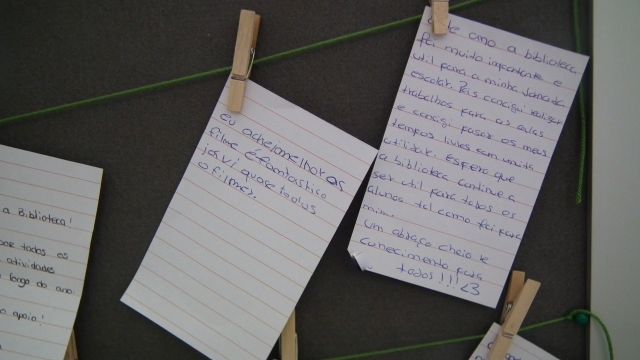 a Biblioteca!
todos os
atividades
longo do ano.
apoio!
eu achei melhor os
filme é fantástico
já vi quase todos
o filme).
te ano a biblioteca
foi muito importante e
util para a minha jornada
escolar. Pois consegui realizar
trabalhos para as aulas
e consigi passar os meus
tempos livres com muita
utilidade. Espero que
a biblioteca continue a
ser util para todos os
alunos tal como foi para
mim.
Um abraço cheio de
conhecimento para
todos!!! <3